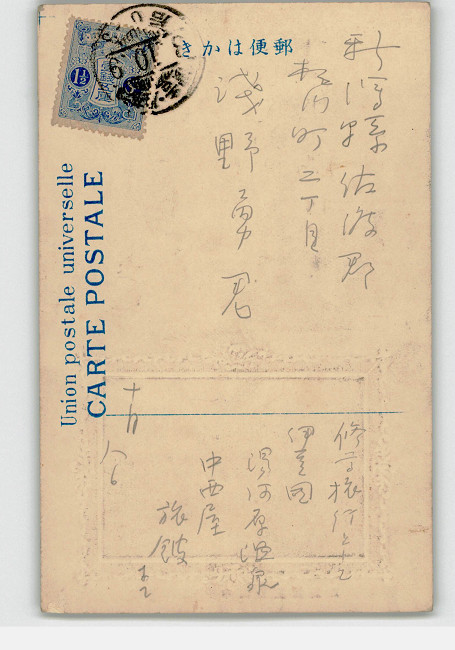 郵便はかき
新潟県佐渡郡
相川町二丁目
浅野勇君
修学旅行
伊豆国
湯河原温泉
中西屋
旅館
十月八日
Union postale universelle
CARTE POSTALE
1½